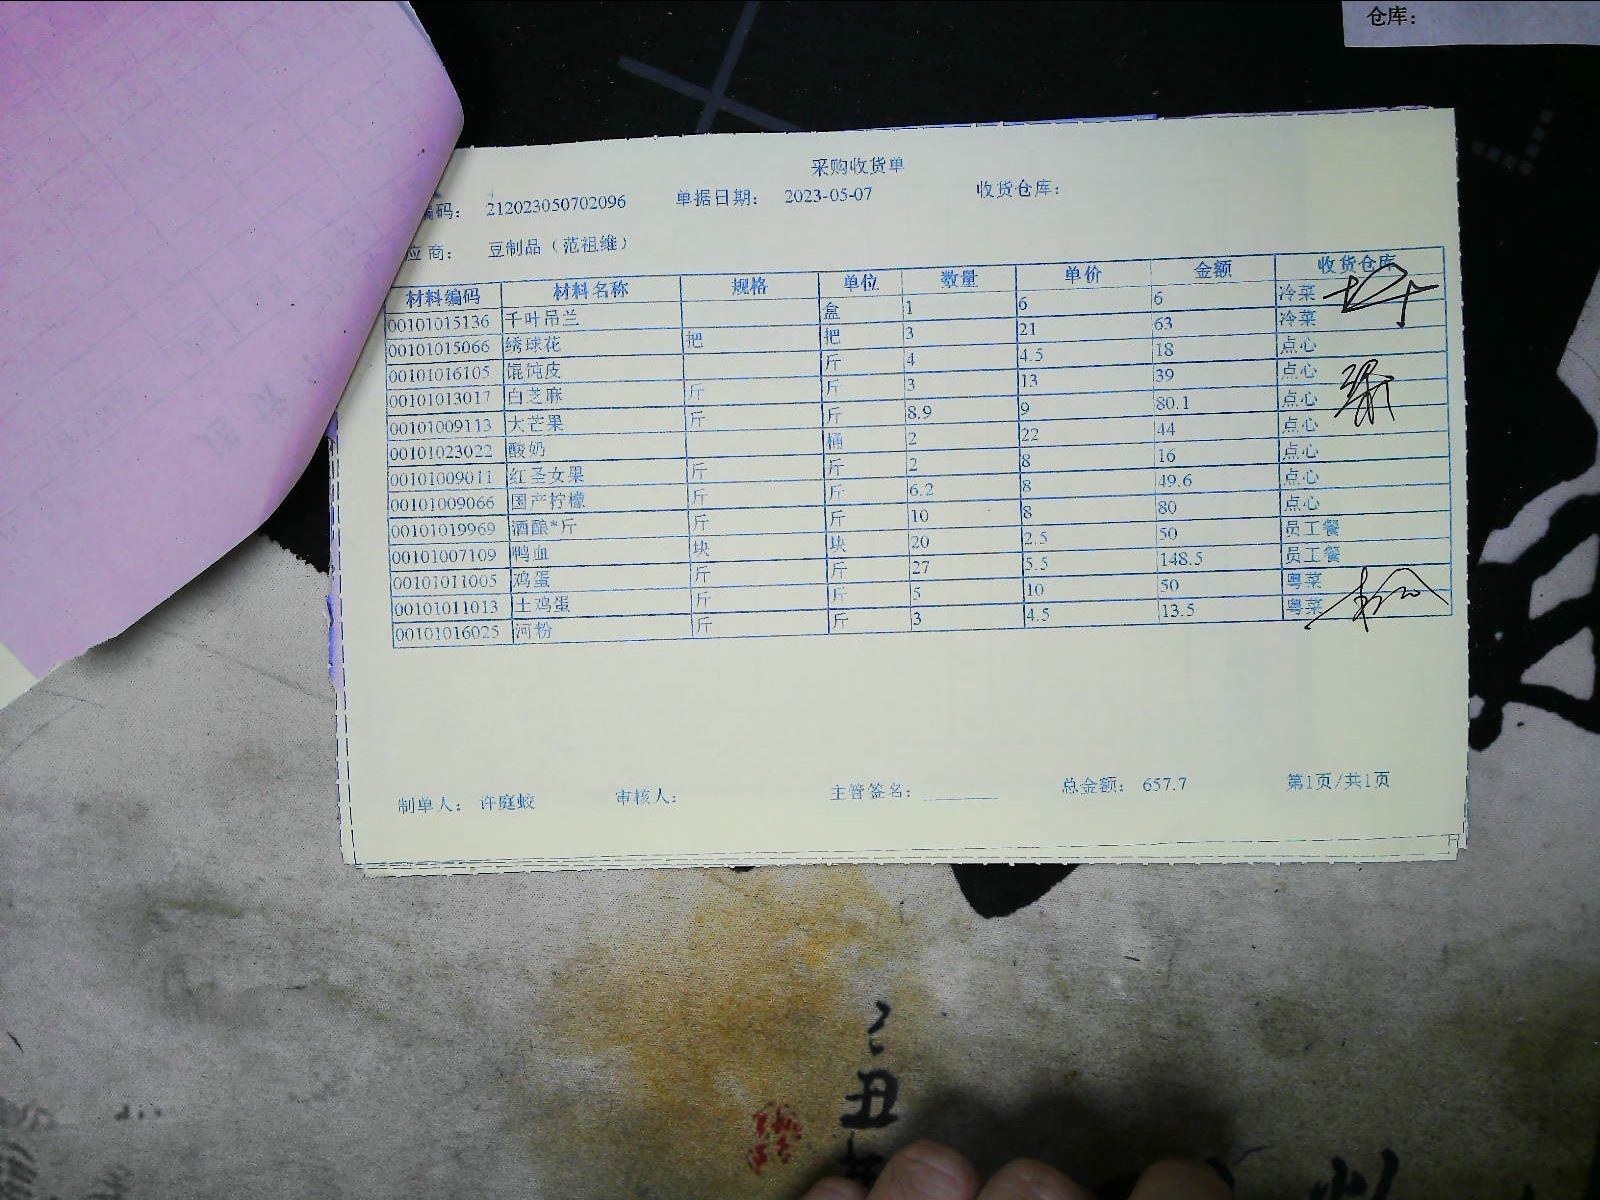 仓库:
采购收货单
编码: 212023050702096 单据日期: 2023-05-07 收货仓库:
应商: 豆制品（范祖维）
材料编码 材料名称 规格 单位 数量 单价 金额 收货仓库
00101015136 千叶吊兰 盒 1 6 6 冷菜
00101015066 绣球花 把 把 3 21 63 冷菜
00101016105 馄饨皮 斤 4 4.5 18 点心
00101013017 白芝麻 斤 斤 3 13 39 点心
00101009113 大芒果 斤 斤 8.9 9 80.1 点心
00101023022 酸奶 桶 2 22 44 点心
00101009011 红圣女果 斤 斤 2 8 16 点心
00101009066 国产柠檬 斤 斤 6.2 8 49.6 点心
00101019969 酒酿*斤 斤 斤 10 8 80 点心
00101007109 鸭血 块 块 20 2.5 50 员工餐
00101011005 鸡蛋 斤 斤 27 5.5 148.5 员工餐
00101011013 土鸡蛋 斤 斤 5 10 50 粤菜
00101016025 河粉 斤 斤 3 4.5 13.5 粤菜
制单人: 许庭蛟 审核人: 主管签名: ________ 总金额: 657.7 第1页/共1页
丑